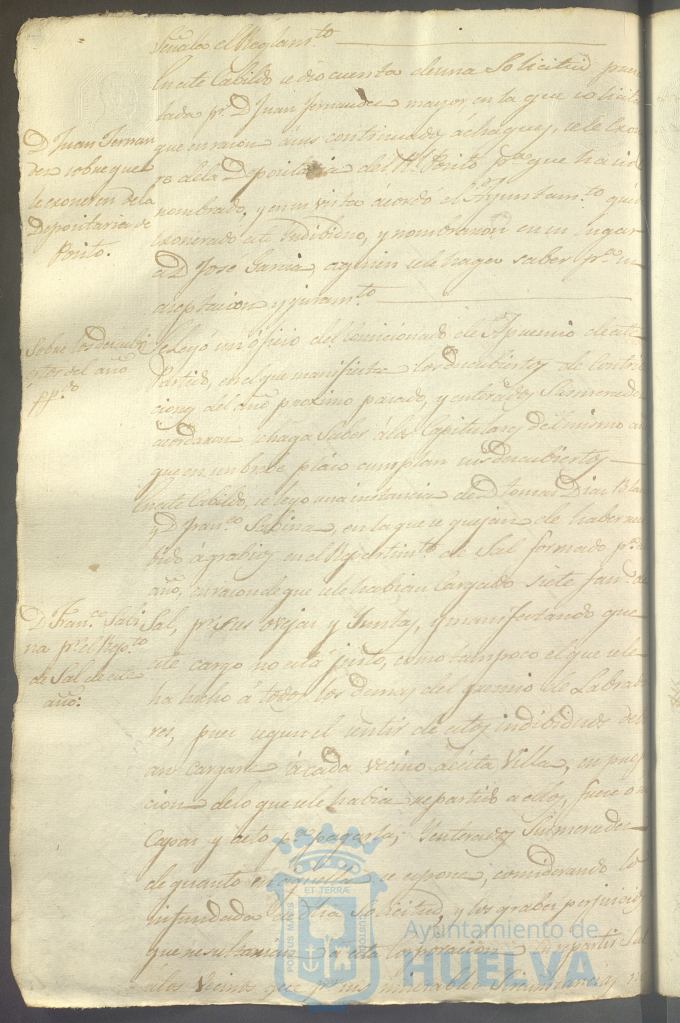 Señala el Reglam.to
En este Cabildo se dio cuenta de una Solicitud presen
tada pr. D Juan Fernandez mayor en la que solicita
que en razon á sus continuados achaques, se le exone
re de la Depositaria del Rl. Posito pa. que ha sido
nombrado, y en su vista acordó el Ayuntam.to quede
exonerado este Individuo, y nombraron en su lugar
a D José Garcia, aquien se le haga saber pa. su
aceptacion y juram.to
D Juan Fernan
dez sobre que se
le exonere de la
Depositaria de
Posito.
Se leyó un oficio del Comicionado de Apremio de este
Partido, en el que manifiesta los descubiertos de Contribu
ciones del año proximo pasado, y enterados Sus mercedes
acordaron se haga saber á los Capitulares del mismo año
que en un breve plazo cumplan sus descubiertos
Sobre los descubi
ertos del año
pp.do
En este Cabildo, se leyo una instancia de D Tomas Dias
y D Fran.co Sabina, en la que se quejan de haber reci
bido agrabios en el Repartim.to de Sal formado pr. este
año, en razon de que se le habian Cargado siete fan.s de
Sal, pr. sus ovejas y Juntas, y manifestando que
este cargo no está justo, como tampoco el que se le
ha hecho á todos los demas del gremio de Labrado
res, pues segun el sentir de estos individuos debi
an cargarse á cada vecino de esta Villa, en propor
cion de lo que se le habia repartido a ellos, fuese o no
Capaz y apto pa. pagarla; Y enterados Sus mercedes
de quanto en aquella se espone, considerando lo
infundado de dha Solicitud, y los grabes perjuicios
que resultarian a esta Corporacion en repartir Sal
á los Vecinos que pr. sus miserables Circunstancias no
D Fran.co Sabi
na pr. el Rep.to
de Sal de este
año:
PORTUS MARIS
ET TERRÆ
CUSTODIA
Ayuntamiento de
HUELVA